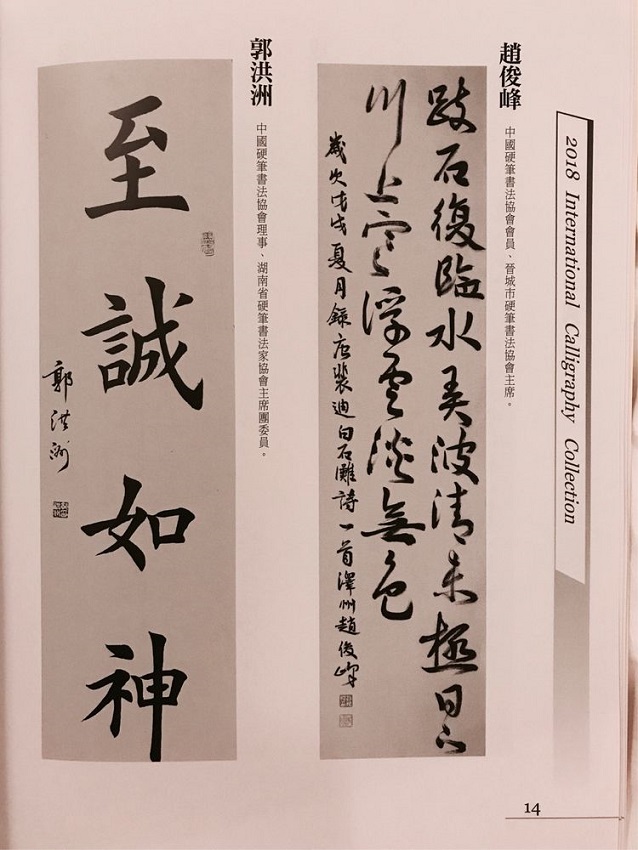 2018 International Calligraphy Collection
趙俊峰
中國硬筆書法協會會員、晉城市硬筆書法協會主席。
跂石復臨水弄波清未極日下
川上寒浮雲淡無色
歲次戊戌夏月錄唐裴迪白石灘詩一首澤州趙俊峰
郭洪洲
中國硬筆書法協會理事、湖南省硬筆書法家協會主席團委員。
至誠如神
郭洪洲
14